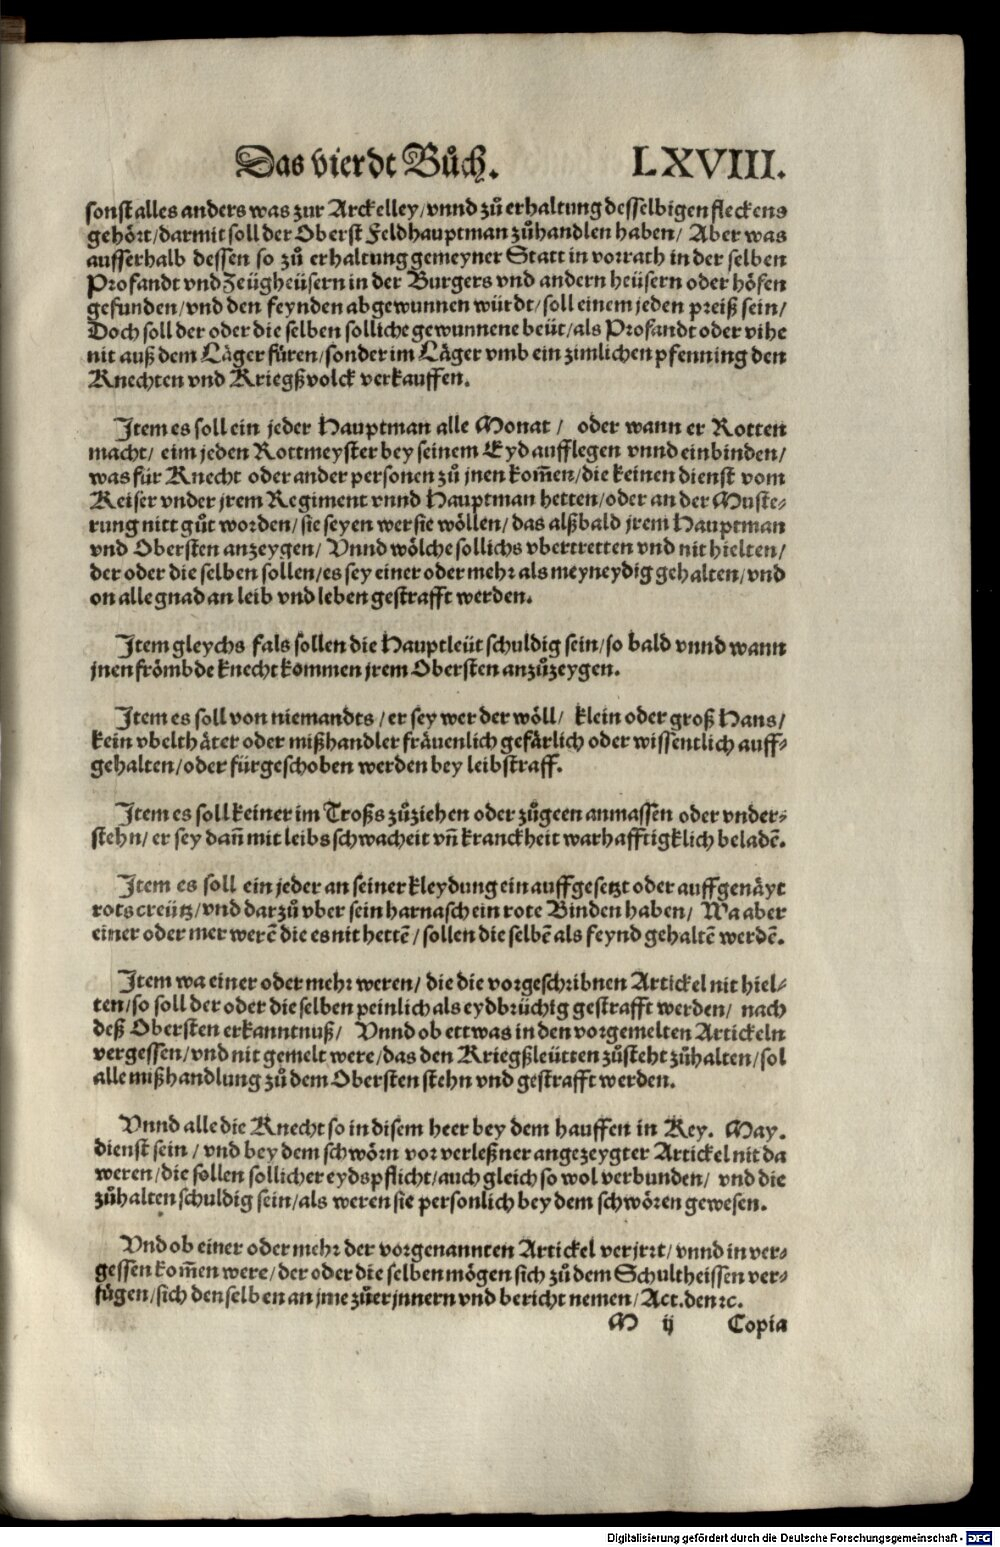 Das vierdt Bůch. LXVIII.
sonst alles anders was zur Arckelley / vnnd zů erhaltung desselbigen fleckens
gehört / darmit soll der Oberst Feldhauptman zůhandlen haben / Aber was
ausserhalb dessen so zů erhaltung gemeyner Statt in vorrath in der selben
Profandt vnd Zeügheüsern in der Burgers vnd andern heüsern oder höfen
gefunden / vnd den feynden abgewunnen würdt / soll einem jeden preiß sein /
Doch soll der oder die selben solliche gewunnene beüt / als Profandt oder vihe
nit auß dem Läger füren / sonder im Läger vmb ein zimlichen pfenning den
Knechten vnd Kriegßvolck verkauffen.
Item es soll ein jeder Hauptman alle Monat / oder wann er Rotten
macht / eim jeden Rottmeyster bey seinem Eyd aufflegen vnnd einbinden /
was für Knecht oder ander personen zů jnen kom̃en / die keinen dienst vom
Keiser vnder jrem Regiment vnnd Hauptman hetten / oder an der Muste-
rung nitt gůt worden / sie seyen wer sie wöllen / das alßbald jrem Hauptman
vnd Obersten anzeygen / Vnnd wölche sollichs vbertretten vnd nit hielten /
der oder die selben sollen / es sey einer oder mehr als meyneydig gehalten / vnd
on alle gnad an leib vnd leben gestrafft werden.
Item gleychs fals sollen die Hauptleüt schuldig sein / so bald vnnd wann
jnen frömbde knecht kommen jrem Obersten anzůzeygen.
Item es soll von niemandts / er sey wer der wöll / klein oder groß Hans /
kein vbelthäter oder mißhandler fräuenlich gefärlich oder wissentlich auff-
gehalten / oder fürgeschoben werden bey leibstraff.
Item es soll keiner im Troßs zůziehen oder zůgeen anmassen oder vnder-
stehn / er sey dañ mit leibs schwacheit vñ kranckheit warhafftigklich beladẽ.
Item es soll ein jeder an seiner kleydung ein auffgesetzt oder auffgenäyt
rots creütz / vnd darzů vber sein harnasch ein rote Binden haben / Wa aber
einer oder mer werẽ die es nit hettẽ / sollen die selbẽ als feynd gehaltẽ werdẽ.
Item wa einer oder mehr weren / die die vorgeschribnen Artickel nit hiel-
ten / so soll der oder die selben peinlich als eydbrüchig gestrafft werden / nach
deß Obersten erkanntnuß / Vnnd ob ettwas in den vorgemelten Artickeln
vergessen / vnd nit gemelt were / das den Kriegßleütten zůsteht zůhalten / sol
alle mißhandlung zů dem Obersten stehn vnd gestrafft werden.
Vnnd alle die Knecht so in disem heer bey dem hauffen in Key. May.
dienst sein / vnd bey dem schwörn vor verleßner angezeygter Artickel nit da
weren / die sollen sollicher eydspflicht / auch gleich so wol verbunden / vnd die
zůhalten schuldig sein / als weren sie personlich bey dem schwören gewesen.
Vnd ob einer oder mehr der vorgenannten Artickel verjrrt / vnnd in ver-
gessen kom̃en were / der oder die selben mögen sich zů dem Schultheissen ver-
fügen / sich denselben an jme zůerjnnern vnd bericht nemen / Act. den ꝛc.
M ij Copia
Digitalisierung gefördert durch die Deutsche Forschungsgemeinschaft - DFG